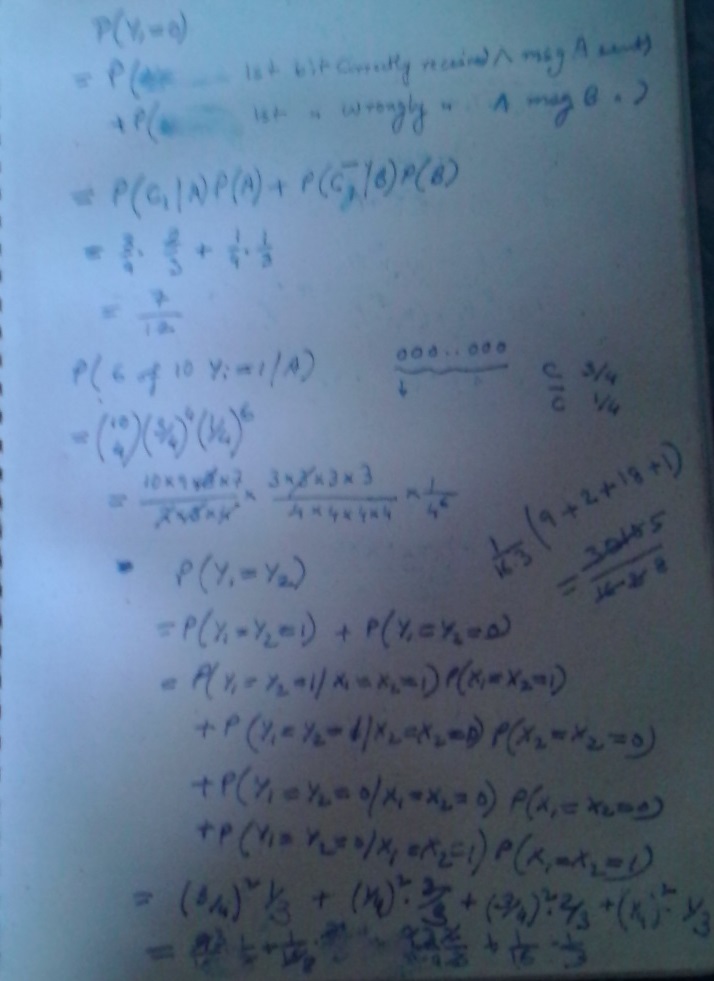 P(Y₁=0)
= P( 1st bit correctly received ∧ msg A sent)
+ P( 1st " wrongly " ∧ msg B " )
= P(C₁|A)P(A) + P(C̄₁|B)P(B)
= 3/4 · 2/3 + 1/4 · 1/3
= 7/12
P( 6 of 10 Yᵢ=1 |A) 000...000 C 3/4
↓ C̄ 1/4
= (10 4)(3/4)⁴(1/4)⁶
= 10×9×8×7/2×3×4 × 3×3×3×3/4×4×4×4 × 1/4⁶
1/16·3 (9+2+18+1)
P(Y₁=Y₂)
= P(Y₁=Y₂=1) + P(Y₁=Y₂=0)
= P(Y₁=Y₂=1/X₁=X₂=1) P(X₁=X₂=1)
+ P(Y₁=Y₂=1/X₂=X₂=0) P(X₂=X₂=0)
+ P(Y₁=Y₂=0/X₁=X₂=0) P(X₁=X₂=0)
+ P(Y₁=Y₂=0/X₁=X₂=1) P(X₁=X₂=1)
= (3/4)² 1/3 + (1/4)² · 2/3 + (3/4)² · 2/3 + (1/4)² · 1/3
+ 1/16 · 1/3